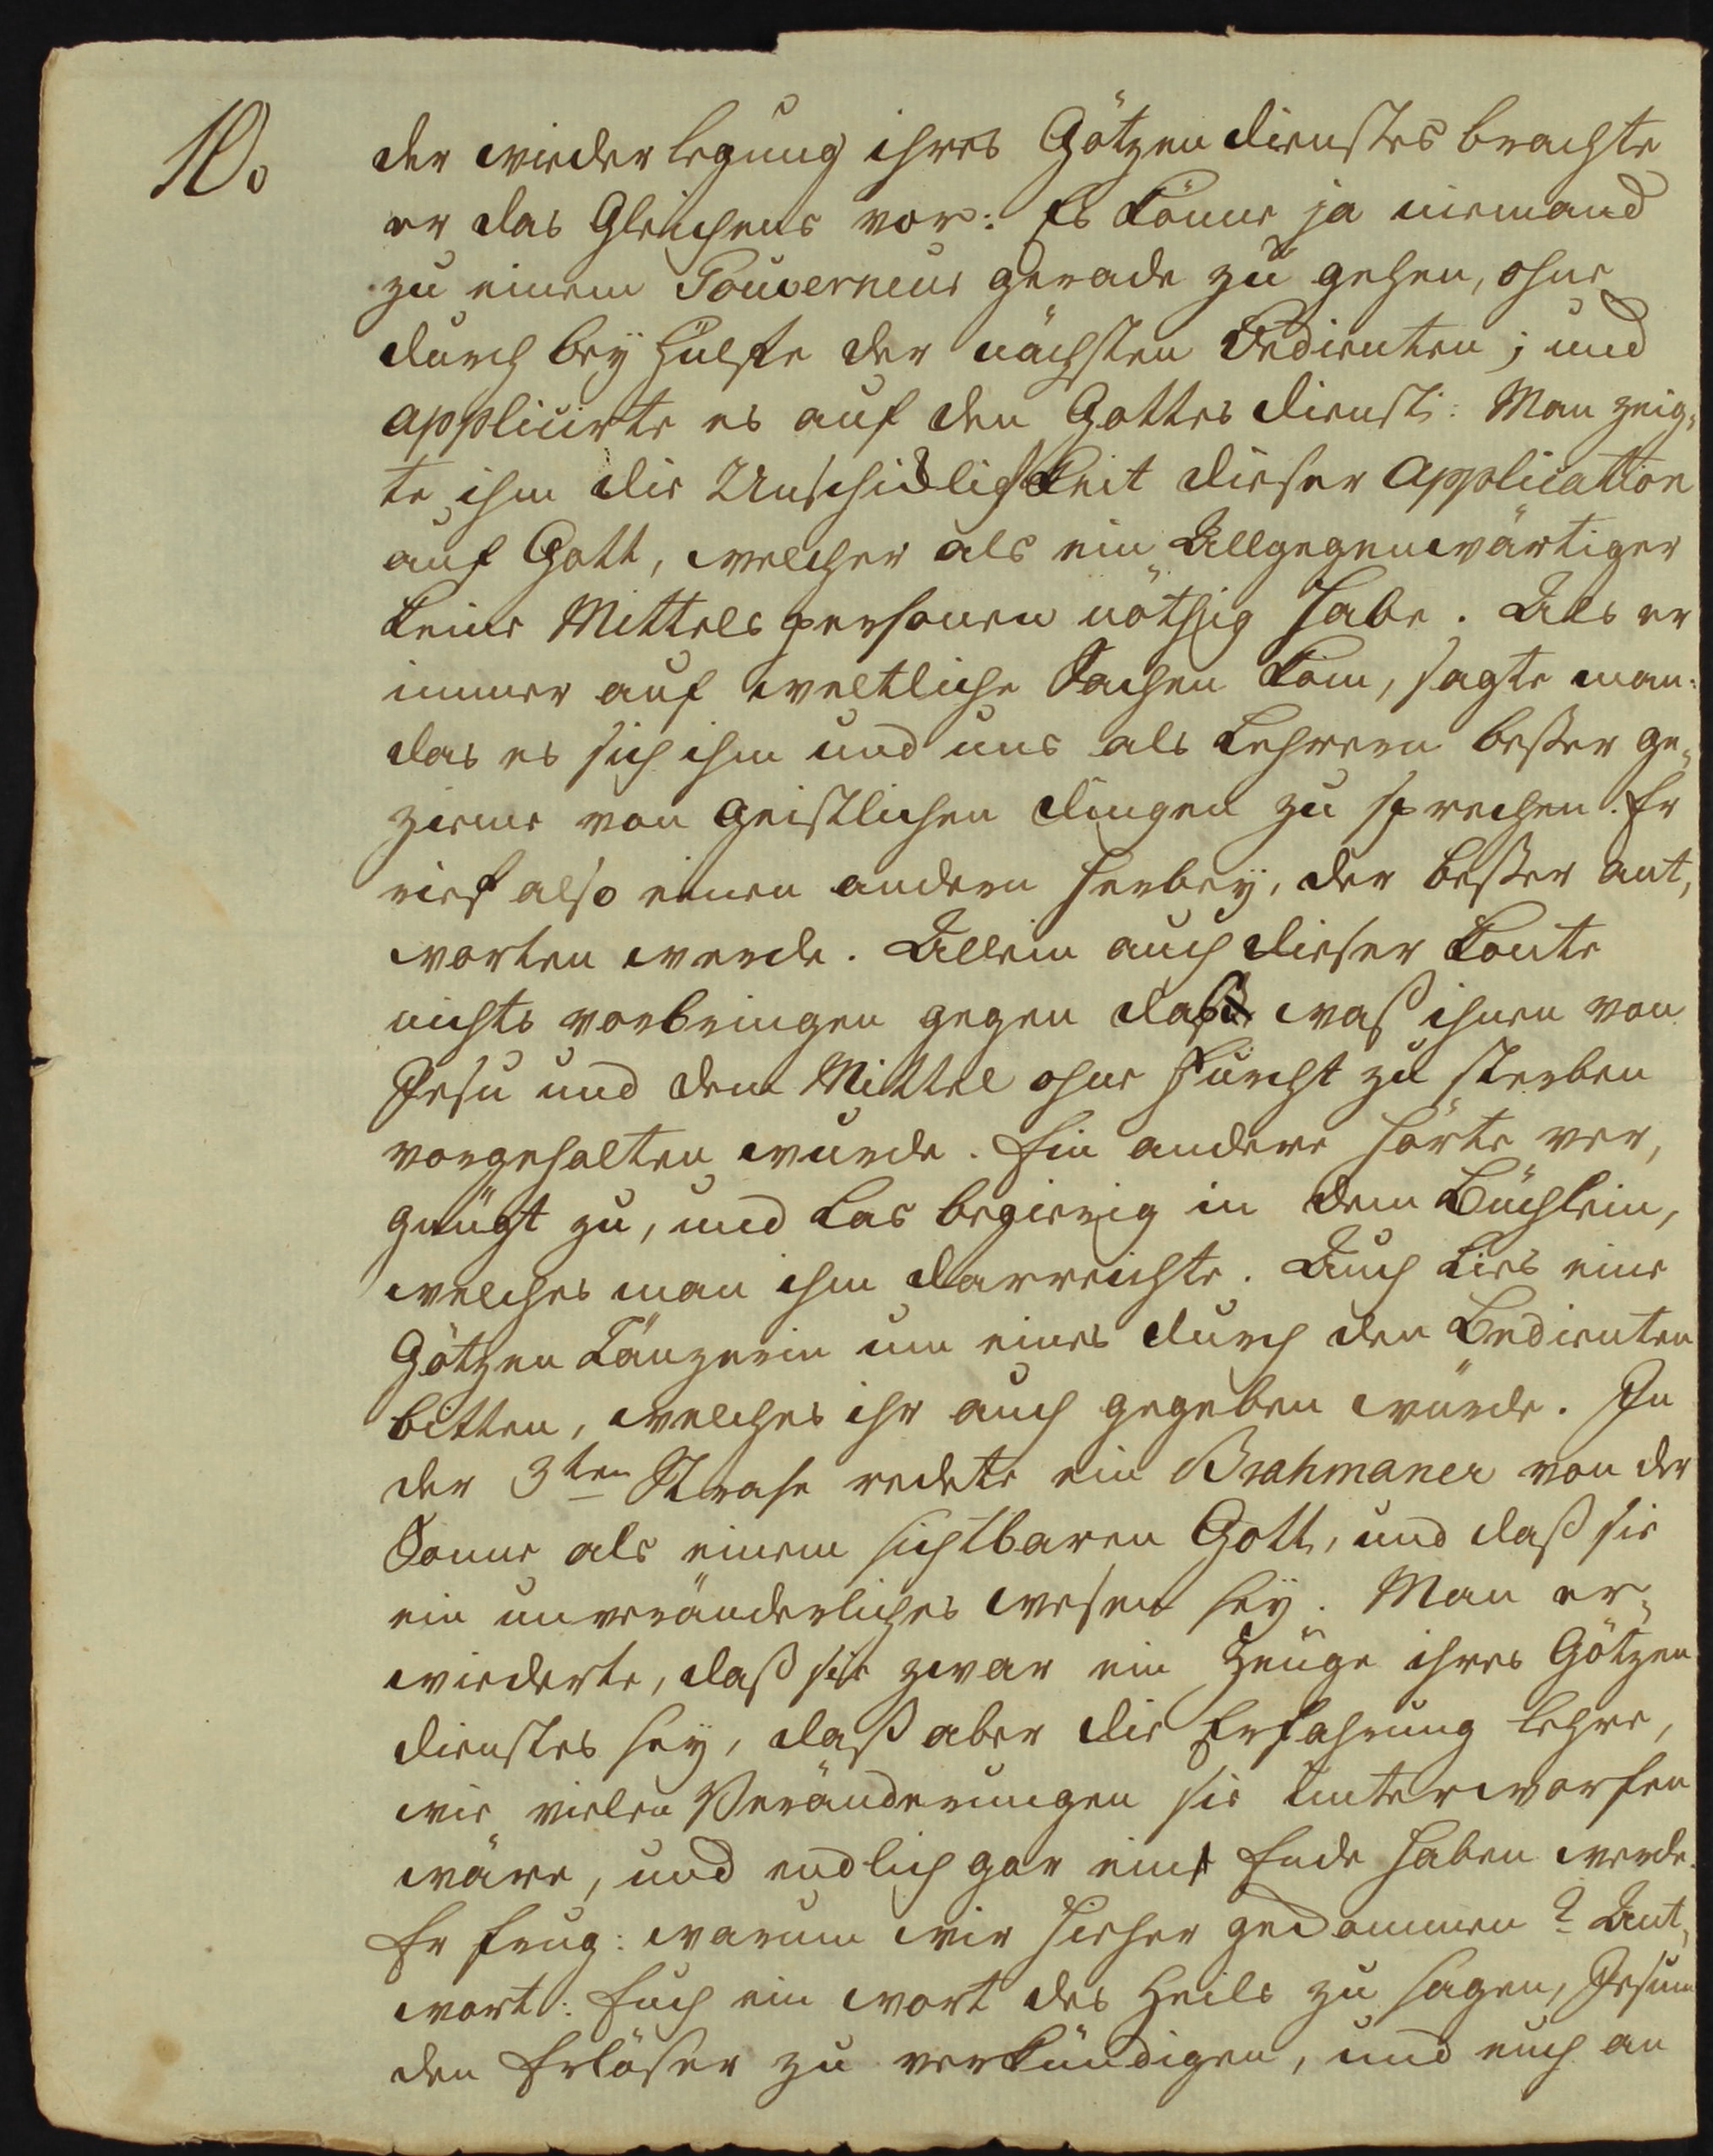 10.
der wiederlegung ihres Götzendienstes brachte
er das Gleichens vor: Es könne ja niemand
zu einem Gouverneur gerade zu gehen, ohne
durch beyhülfe der nächsten Bedienten; und
applicirte es auf den Gottesdienst: Man zeig,
te ihm die Unschicklichkeit dieser Application
auf Gott, welcher als ein Allgegenwärtiger
keine Mittelspersonen nöthig habe. Als er
immer auf weltliche Sachen kam, sagte man:
das es sich ihm und uns als Lehrern beßer ge,
zieme von geistlichen dingen zu sprechen. Er
rief also einen andern herbey, der beßer ant,
worten werde. Allein auch dieser konte
nichts vorbringen gegen das waß ihnen von
Jesu und dem Mittel ohne Furcht zu sterben
vorgehalten wurde. Ein andere hörte ver,
gnügt zu, und las begierig in dem Büchlein,
welches man ihm darreichte. Auch lies eine
Götzen Tänzerin um eines durch den Bedienten
bitten, welches ihr auch gegeben wurde. In
der 3ten Strase redete ein Brahmaner von der
Sonne als einem sichtbaren Gott, und daß sie
ein unveränderliches wesen sey. Man er,
wiederte, daß sie zwar ein Zeuge ihres Götzen
dienstes sey, daß aber die Erfahrung lehre,
wie vielen Veränderungen sie unterworfen
wäre, und endlich gar ein Ende haben werde.
Er frug: warum wir hieher gekommen? Ant,
wort: Euch ein wort des Heils zu sagen, Jesum
den Erlöser zu verkündigen, und euch an